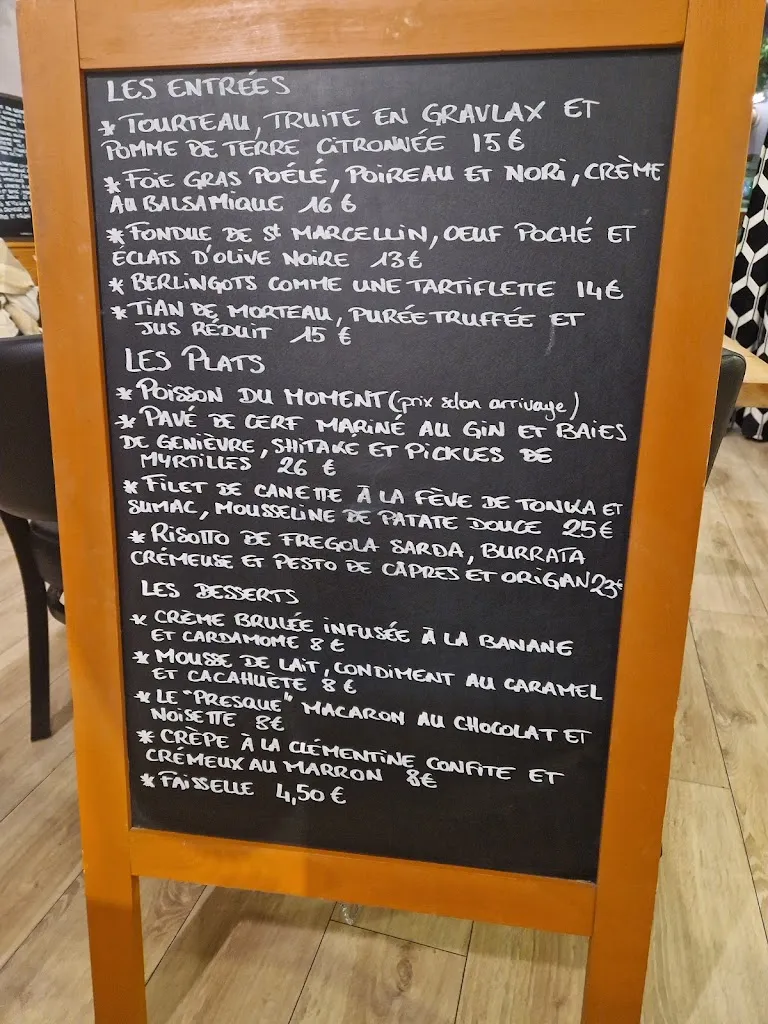 LES ENTRÉES
* TOURTEAU, TRUITE EN GRAVLAX ET
POMME DE TERRE CITRONNÉE 15 €
* FOIE GRAS POÊLÉ, POIREAU ET NORI, CRÈME
AU BALSAMIQUE 16 €
* FONDUE DE St MARCELLIN, OEUF POCHÉ ET
ÉCLATS D'OLIVE NOIRE 13 €
* BERLINGOTS COMME UNE TARTIFLETTE 14€
* TIAN DE MORTEAU, PURÉE TRUFFÉE ET
JUS RÉDUIT 15 €
LES PLATS
* POISSON DU MOMENT (prix selon arrivage)
* PAVÉ DE CERF MARINÉ AU GIN ET BAIES
DE GENIÈVRE, SHITAKÉ ET PICKLES DE
MYRTILLES 26 €
* FILET DE CANETTE À LA FÈVE DE TONKA ET
SUMAC, MOUSSELINE DE PATATE DOUCE 25€
* RISOTTO DE FREGOLA SARDA, BURRATA
CRÉMEUSE ET PESTO DE CÂPRES ET ORIGAN 23€
LES DESSERTS
* CRÈME BRULÉE INFUSÉE À LA BANANE
ET CARDAMOME 8 €
* MOUSSE DE LAIT, CONDIMENT AU CARAMEL
ET CACAHUÈTE 8 €
* LE "PRESQUE" MACARON AU CHOCOLAT ET
NOISETTE 8€
* CRÈPE À LA CLÉMENTINE CONFITE ET
CRÉMEUX AU MARRON 8€
* FAISSELLE 4,50 €